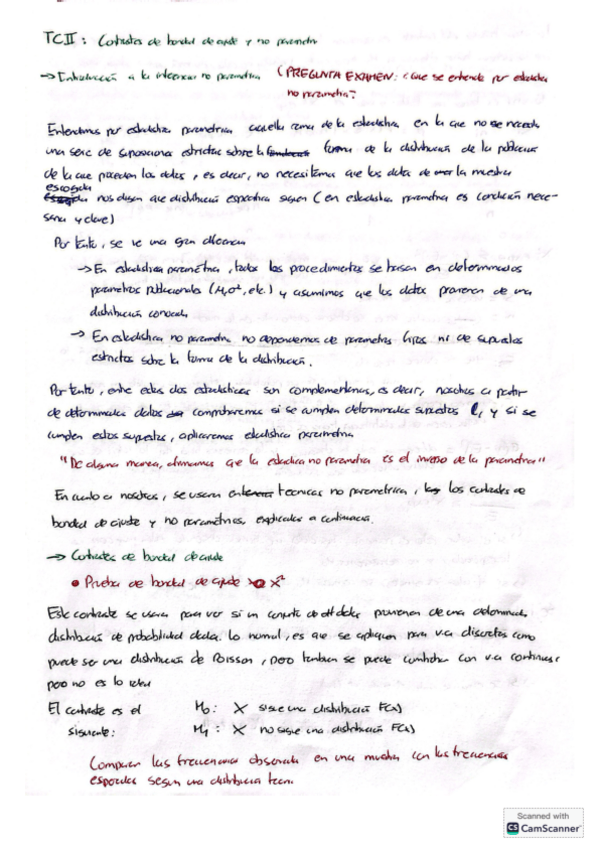 TCII: Contrastes de bondad de ajuste y no paramétri
→ Introducción a la inferencia no paramétrica (PREGUNTA EXAMEN: ¿Que se entiende por estadística
no paramétrica?
Entendemos por estadística paramétrica aquella rama de la estadística en la que no se necesita
una serie de suposiciones estrictas sobre la forma de la distribución de la población
de la que proceden los datos, es decir, no necesitamos que los datos de la muestra
escogida nos digan que distribución especifica siguen (en estadística paramétrica es condición nece-
saria y clave)
Por tanto, se ve una gran diferencia
→ En estadística paramétrica, todos los procedimientos se basan en determinados
parámetros poblacionales (M, σ², etc.) y asumimos que los datos provienen de una
distribución conocida.
→ En estadística no paramétrica no dependemos de parámetros fijos ni de supuestos
estrictos sobre la forma de la distribución.
Por tanto, entre estas dos estadísticas son complementarias, es decir, nosotros a partir
de determinados datos comprobaremos si se cumplen determinados supuestos y si se
cumplen estos supuestos, aplicaremos estadística paramétrica
"De alguna manera, afirmamos que la estadística no paramétrica es el inverso de la paramétrica"
En cuanto a nosotros, se usarán técnicas no paramétricas, los contrastes de
bondad de ajuste y no paramétricos, explicados a continuación.
→ Contrastes de bondad de ajuste
• Prueba de bondad de ajuste X²
Este contraste se usara para ver si un conjunto de datos provienen de una determinada
distribución de probabilidad dada. Lo normal, es que se apliquen para v.a discretas como
puede ser una distribución de Poisson, pero tambien se puede con v.a continuas
pero no es lo ideal
El contraste es el H₀: X sigue una distribución F(x)
siguiente: H₁: X no sigue una distribución F(x)
Comparar las frecuencias observadas en una muestra con las frecuencias
esperadas según una distribución teori.
Scanned with
CS CamScanner